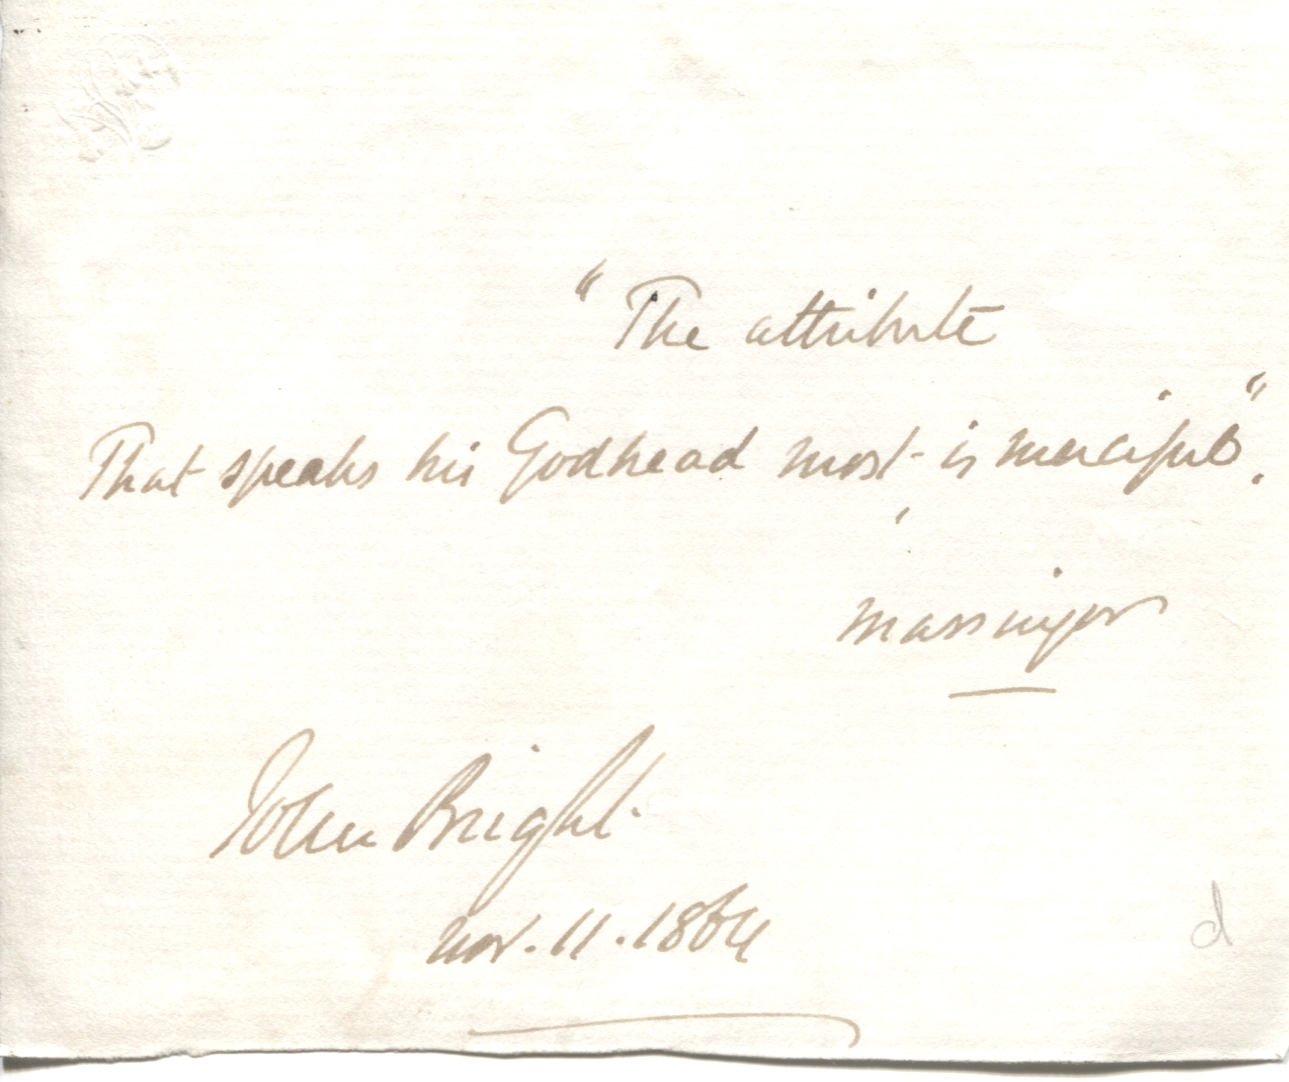 "The attribute
That speaks his Godhead most is merciful".
Massinger
John Bright
Nov. 11. 1864
d